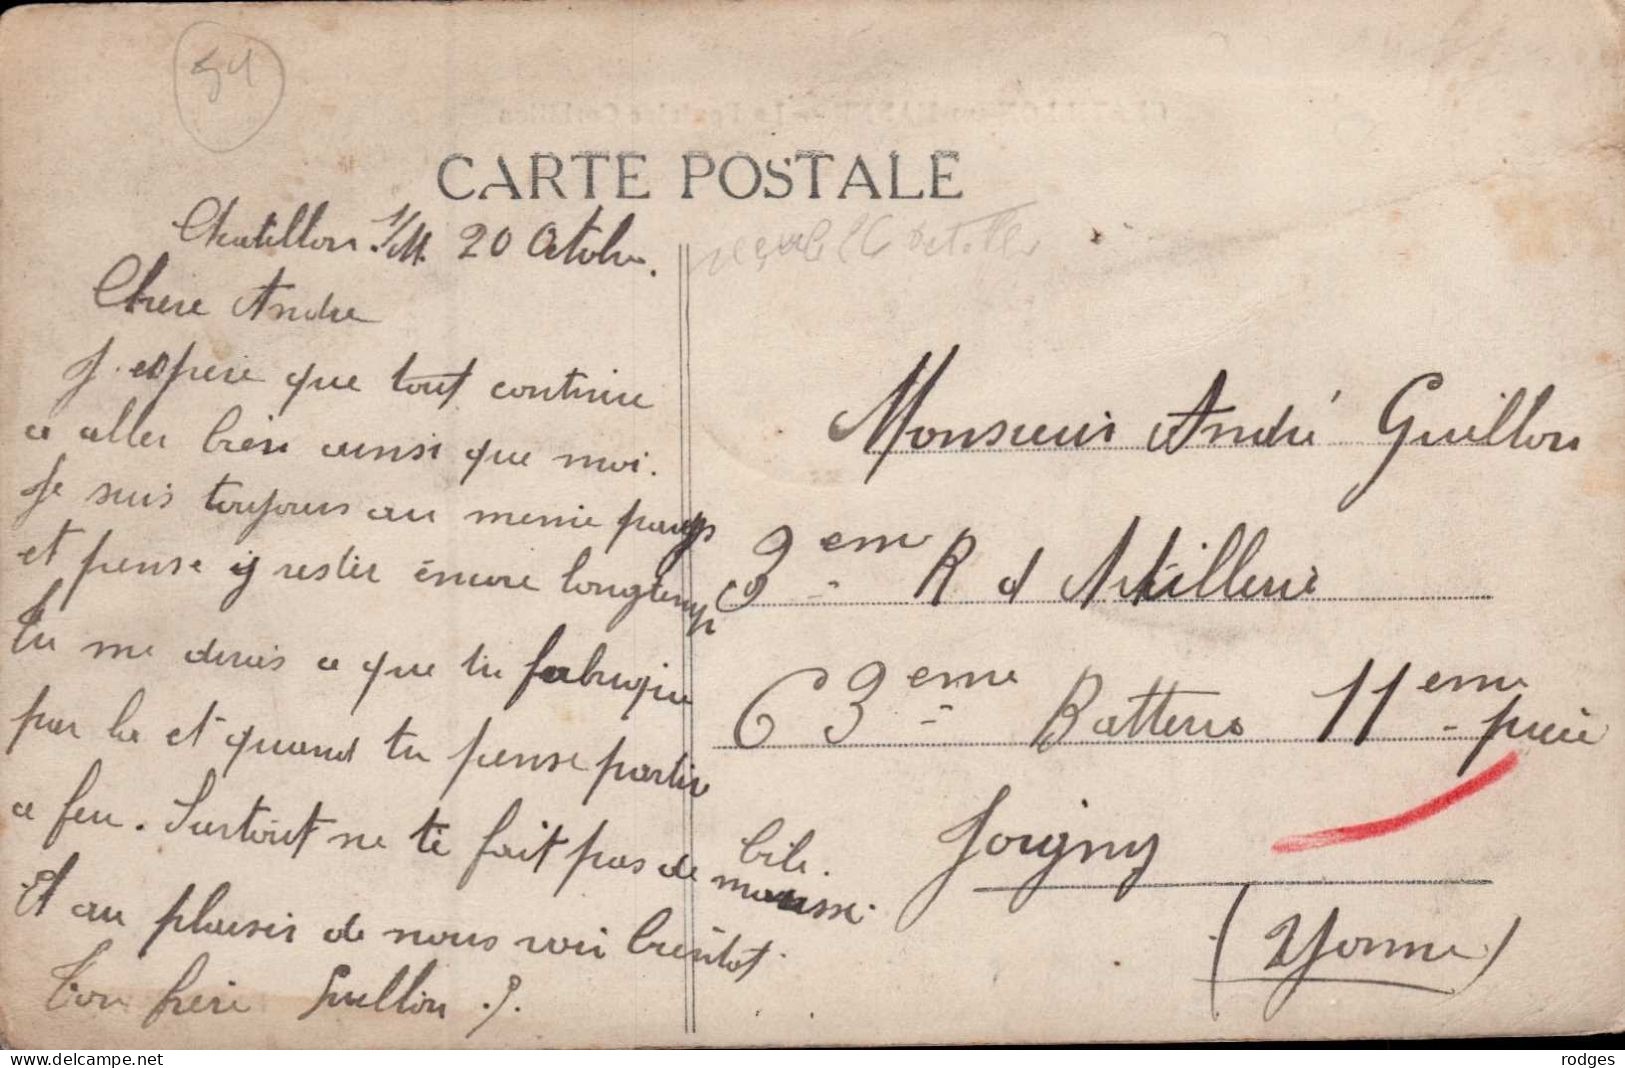 51
CARTE POSTALE
Chatillon S/M. 20 Octobre.
Chere Andre
J. espere que tout continue
a aller bien ainsi que moi.
Je suis toujours au meme pays
et pense y rester encore longtemp
Tu me diras a que tu fabrique
par la et quand tu pense partir
a feu. Surtout ne te fait pas de bile.
mousse.
Et au plaisir de nous voir bientot.
Ton frere Guillon. P.
26 octobre
Monsieur André Guillon
3eme R d Artillerie
63eme Batterie 11eme piece
Joigny
(Yonne)
rodges